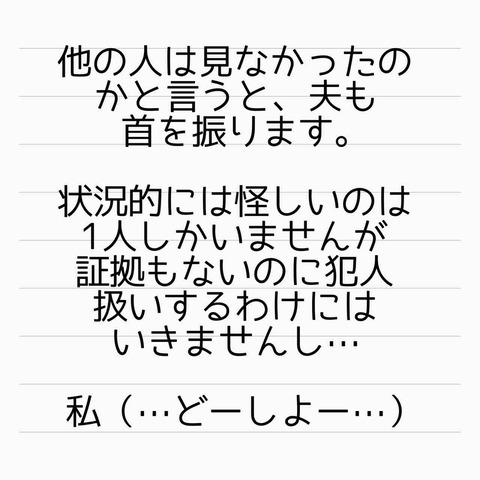 他の人は見なかったの
かと言うと、夫も
首を振ります。
状況的には怪しいのは
1人しかいませんが
証拠もないのに犯人
扱いするわけには
いきませんし…
私（…どーしよー…）